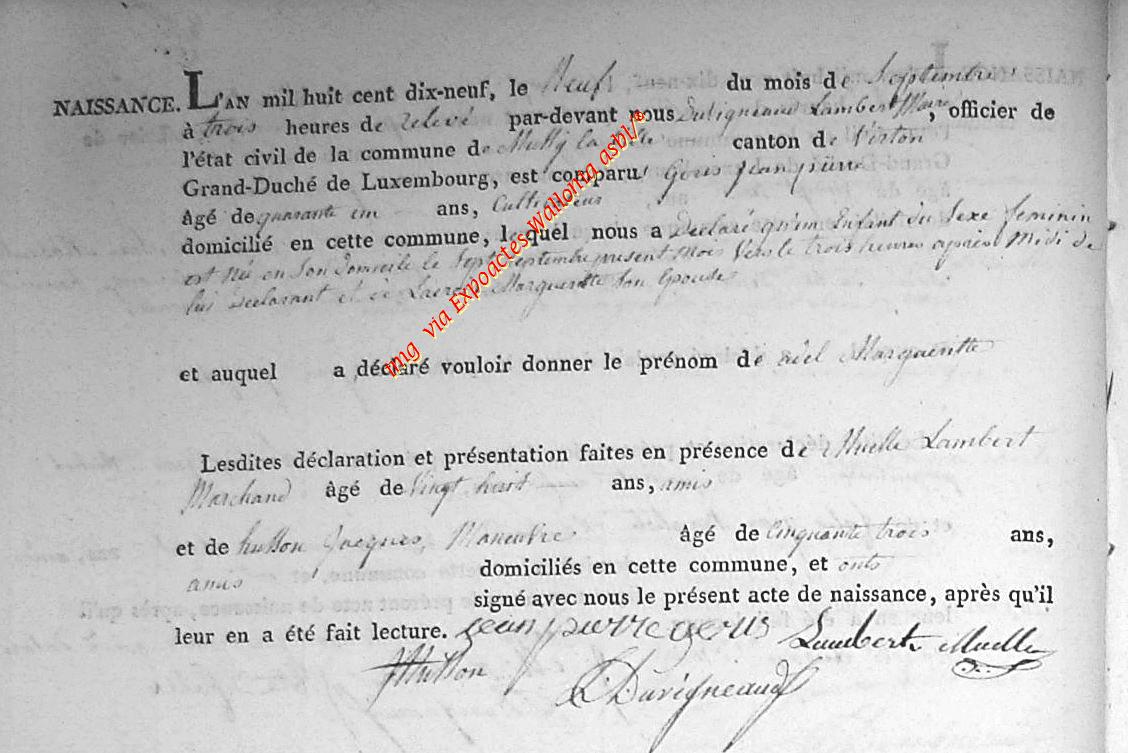 NAISSANCE. L'AN mil huit cent dix-neuf, le Neuf du mois de Septembre
à trois heures de relevé par-devant nous Duvigneaud Lambert Maire, officier de
l'état civil de la commune de Mussy la ville canton de Virton
Grand-Duché de Luxembourg, est comparu Jean pierre
âgé de quarante cinq ans, Cultivateur
domicilié en cette commune, lequel nous a Declaré qu'un Enfant du Sexe feminin
est Né en Son domicile le Sept Septembre present Mois Vers le trois heures apres Midi de
lui declarant et de Margueritte Son Epouse
et auquel a déclaré vouloir donner le prénom de Margueritte
Lesdites déclaration et présentation faites en présence de Muelle Lambert
Marchand âgé de Vingt huit ans, amis
et de husson Jacques, Maneuvre âgé de Cinquante trois ans,
amis domiciliés en cette commune, et onts
signé avec nous le présent acte de naissance, après qu'il
leur en a été fait lecture. jean pierre gerus Lambert Muelle
JHusson L. Duvigneaud
mg via Expoactes-Wallonia asbl/®